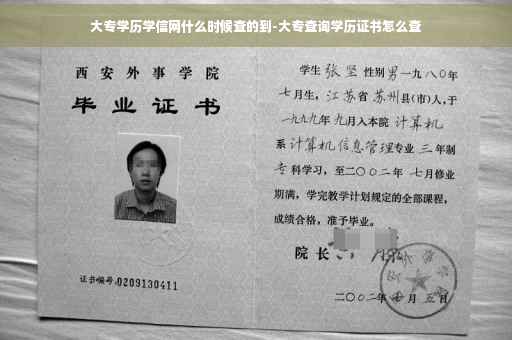 大专学历学信网什么时候查的到-大专查询学历证书怎么查
西安外事学院
毕业证书
证书编号:0209130411
学生 张坚 性别 男 一九八〇年
七月生,江苏省 苏州县(市)人,于
一九九九年 九月入本院 计算机
系 计算机信息管理专业 三 年制
专 科学习,至二〇〇二年 七月修业
期满,学完教学计划规定的全部课程,
成绩合格,准予毕业。
院长
二〇〇二年 月 五日